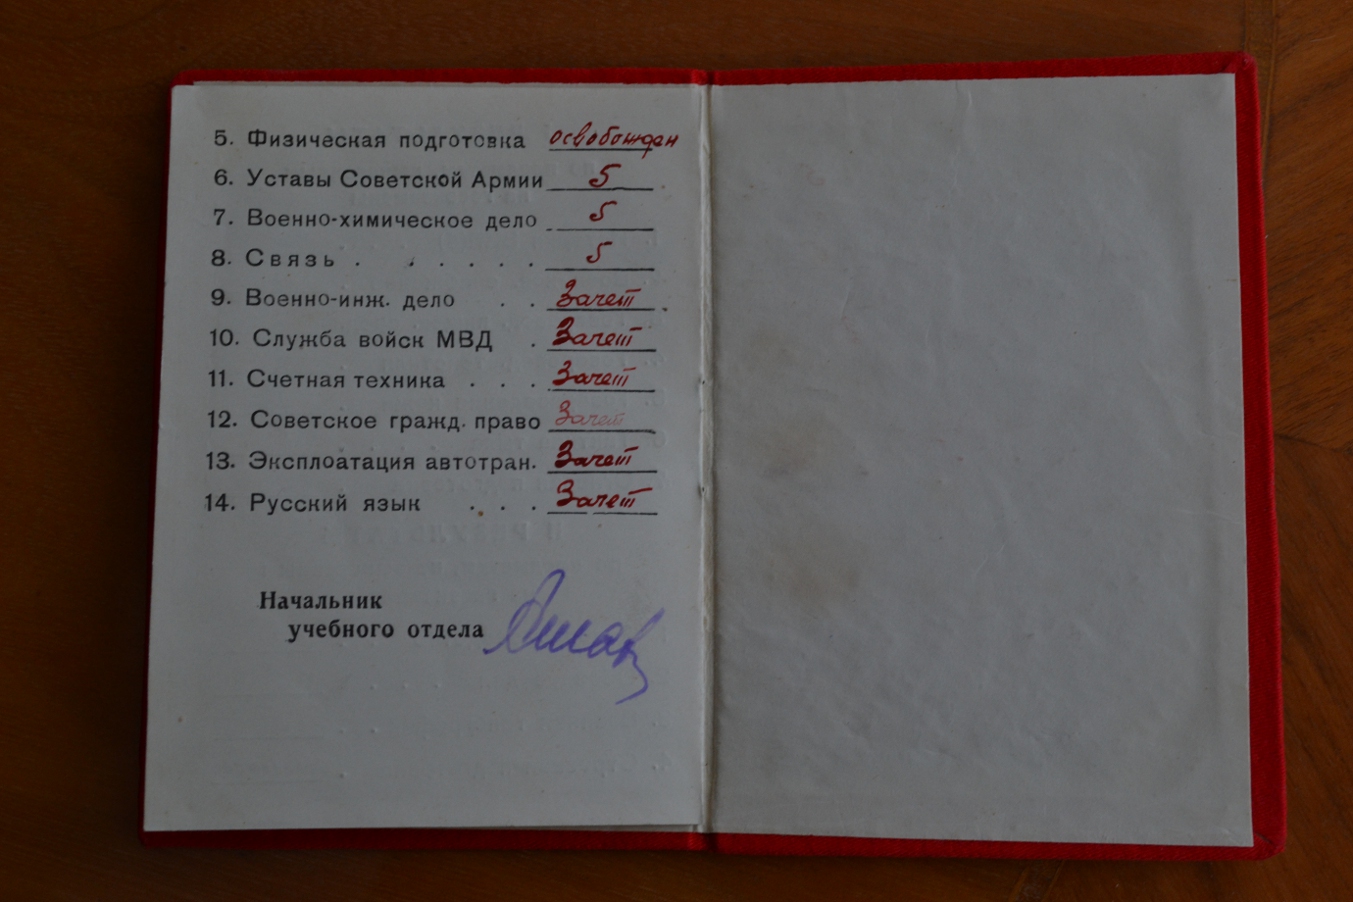 5. Физическая подготовка освобожден
6. Уставы Советской Армии 5
7. Военно-химическое дело 5
8. Связь . . . . . . 5
9. Военно-инж. дело . . Зачет
10. Служба войск МВД . Зачет
11. Счетная техника . . . Зачет
12. Советское гражд. право Зачет
13. Эксплоатация автотран. Зачет
14. Русский язык . . . Зачет
Начальник
учебного отдела